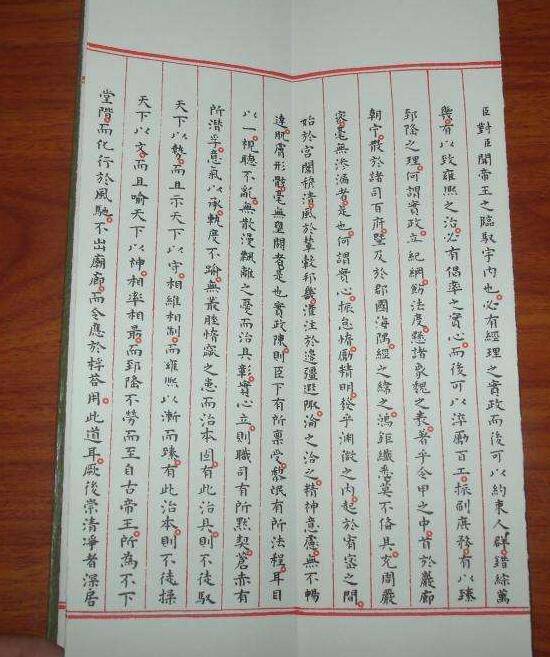 臣對臣聞帝王之臨馭宇內也必有經理之實政而後可以約束人群錯綜萬
幾有以致雍熙之治必有倡率之實心而後可以淬勵百工振刷庶務有以臻
郅隆之理何謂實政立紀綱飭法度懸諸象魏之表著乎令甲之中首於巖廊
朝宁散於諸司百府暨及於郡國海隅經之緯之鴻鉅纖悉莫不備具充周嚴
密毫無滲漏者是也何謂實心振怠惰勵精明從乎淵微之內起於宥密之間
始於宮闈穆清風於輦轂邦畿灌注於邊疆遐陬淪之洽之精神意慮無不暢
達肌膚形骸毫無壅閼者是也實政陳則臣下有所稟受黎氓有所法程耳目
以一視聽不亂無散漫飄離之憂而治具彰實心立則職司有所默契蒼赤有
所潛孚意氣以承軌度不踰無叢脞惰窳之患而治本固有此治具則不徒馭
天下以勢而且示天下以守相維相制而雍熙以漸而臻有此治本則不徒操
天下以文而且喻天下以神相率相最而郅隆不勞而至自古帝王所為不下
堂階而化行於風馳不出廟廊而令應於桴荅用此道耳厥後崇清淨者深居